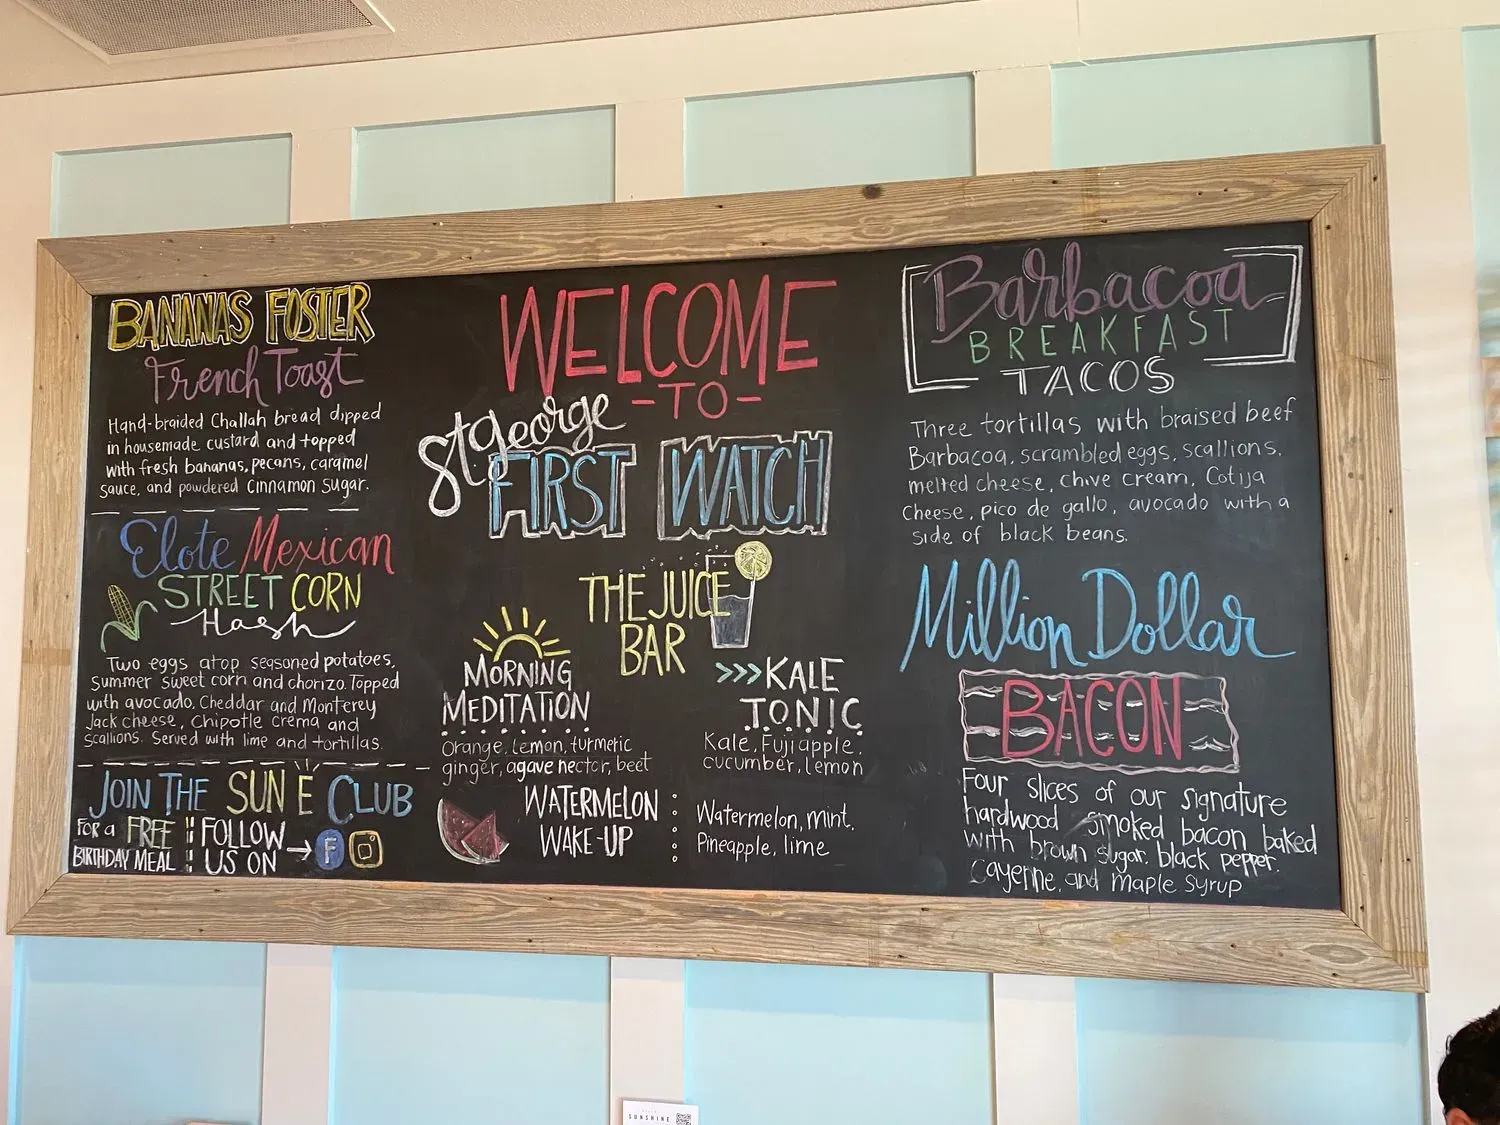 BANANAS FOSTER
French Toast
Hand-braided Challah bread dipped
in housemade custard and topped
with fresh bananas, pecans, caramel
sauce, and powdered cinnamon sugar.
Elote Mexican
STREET CORN
Hash
Two eggs atop seasoned potatoes,
summer sweet corn and chorizo. Topped
with avocado, Cheddar and Monterey
Jack cheese, Chipotle crema and
scallions. Served with lime and tortillas.
JOIN THE SUN E CLUB
FOR a FREE
BIRTHDAY MEAL
FOLLOW
US ON
F
WELCOME
-TO-
St george
FIRST WATCH
THE JUICE
BAR
MORNING
MEDITATION
Orange, Lemon, turmeric
ginger, agave nectar, beet
>>>KALE
TONIC
Kale, Fuji apple,
cucumber, Lemon
WATERMELON
WAKE-UP
Watermelon, mint,
Pineapple, lime
Barbacoa
BREAKFAST
TACOS
Three tortillas with braised beef
Barbacoa, scrambled eggs, scallions,
melted cheese, chive cream, Cotija
Cheese, pico de gallo, avocado with a
side of black beans.
Million Dollar
BACON
Four slices of our signature
hardwood smoked bacon baked
with brown sugar, black pepper,
Cayenne, and Maple Syrup
SUNSHINE